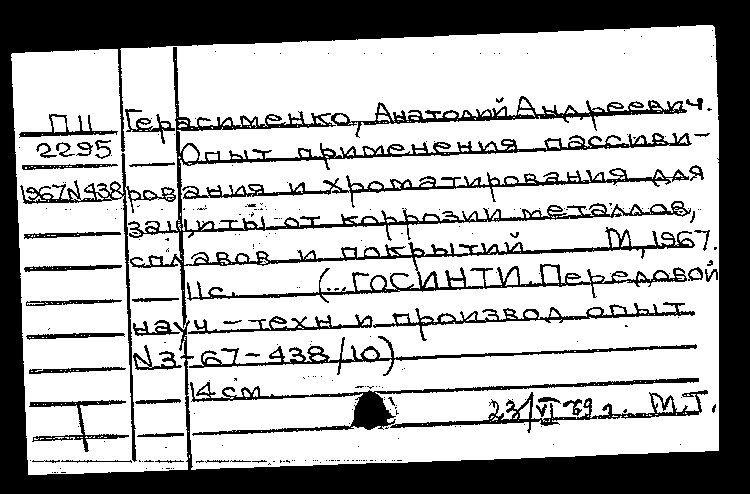 П11 Герасименко, Анатолий Андреевич.
2295 Опыт применения пассиви-
1967N438 рования и хроматирования для
защиты от коррозии металлов,
сплавов и покрытий М, 1967.
11с. (...ГОСИНТИ. Передовой
науч.-техн. и производ опыт
N3-67-438/10)
14 см.
23/VI 69 г. М.Т.